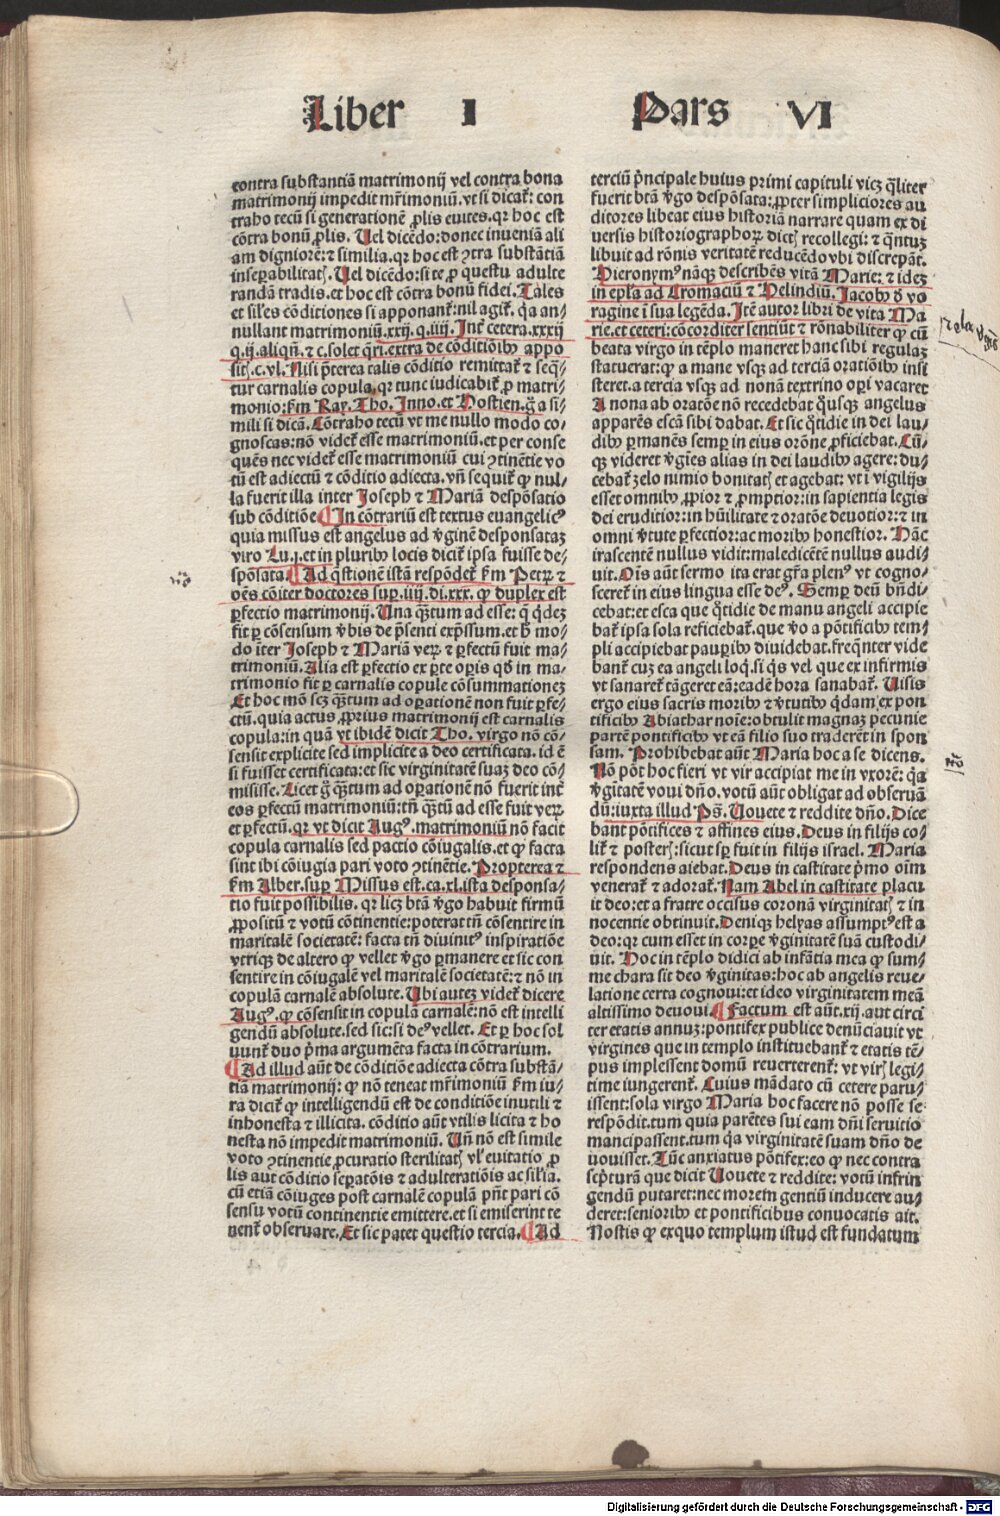 Liber I Pars VI
contra substantiā matrimonij vel contra bona
matrimonij impedit mr̄imoniū. vt si dicat᷑: con
traho tecū si generationē ꝓlis euites. qꝛ hoc est
cōtra bonū ꝓlis. Uel dicēdo: donec inueniā ali
am digniorē: ⁊ similia. qꝛ hoc est ꝯtra substātiā
inseꝑabilitatꝭ. Uel dicēdo: si te ꝓ questu adulte
randā tradis. et hoc est cōtra bonū fidei. Tales
et sil̄es cōditiones si apponant᷑: nil agit᷑. q̄a an⸗
nullant matrimoniū. xxij. q. iiij. Int̄ cetera. xxxij
q. ij. aliqn̄. ⁊ c. solet q̄ri. extra de cōditiōibꝰ appo
sitꝭ. c. vl. Nisi p̄terea talis cōditio remittat᷑ ⁊ seq̄⸗
tur carnalis copula. qꝛ tunc iudicabit᷑ ꝓ matri⸗
monio: ẜm Ray. Tho. Inno. et Hostien. g̊ a si⸗
mili si dicā. Cōtraho tecū vt me nullo modo co⸗
gnoscas: nō videt᷑ esse matrimoniū. et per conse
quēs nec videt᷑ esse matrimoniū cui ꝯtinētie vo
tū est adiectū ⁊ cōditio adiecta. vn̄ sequit᷑ ꝙ nul⸗
la fuerit illa inter Joseph ⁊ Mariā despōsatio
sub cōditiōe ¶ In cōtrariū est textus euangelicꝰ
quia missus est angelus ad v̄ginē desponsataꝫ
viro Lu. j. et in pluribꝰ locis dicit᷑ ipsa fuisse de⸗
spōsata. ¶ Ad q̄stionē istā respōdet᷑ ẜm Petꝝ ⁊
oēs cōiter doctores suꝑ. iiij. di. xxx. ꝙ duplex est
ꝑfectio matrimonij. Una q̄ꝫtum ad esse: q̄ q̇deꝫ
fit ꝑ cōsensum v̄bis de p̄senti exp̄ssum. et h̄ mo⸗
do īter Joseph ⁊ Mariā veꝝ ⁊ ꝑfectū fuit ma⸗
trimoniū. Alia est ꝑfectio ex ꝑte oꝑis qd̄ in ma⸗
trimonio fit ꝑ carnalis copule cōsummationeꝫ
Et hoc mō scꝫ q̄ꝫtum ad oꝑationē non fuit ꝑfe⸗
ctū. quia actus ꝓprius matrimonij est carnalis
copula: in quā vt ibidē dicit Tho. virgo nō cō⸗
sensit explicite sed implicite a deo certificata. id ē
si fuisset certificata: et sic virginitatē suaꝫ deo cō⸗
misisse. Licet g̊ q̄ꝫtum ad oꝑationē nō fuerit int̄
eos ꝑfectū matrimoniū: tn̄ q̄ꝫtū ad esse fuit veꝝ
et ꝑfectū. qꝛ vt dicit Augꝰ. matrimoniū nō facit
copula carnalis sed pactio cōiugalis. et ꝙ facta
sint ibi cōiugia pari voto ꝯtinētie. Propterea ⁊
ẜm Alber. suꝑ Missus est. ca. xl. ista desponsa⸗
tio fuit possibilis. qꝛ licꝫ btā v̄go habuit firmū
ꝓpositū ⁊ votū cōtinentie: poterat tn̄ cōsentire in
maritalē societatē: facta tn̄ diuinitꝰ inspiratiōe
vtriqꝫ de altero ꝙ vellet v̄go ꝑmanere et sic con
sentire in cōiugalē vel maritalē societatē: ⁊ nō in
copulā carnalē absolute. Ubi auteꝫ videt᷑ dicere
Augꝰ. ꝙ cōsensit in copulā carnalē: nō est intelli
gendū absolute. sed sic: si deꝰ vellet. Et ꝑ hoc sol
uunt᷑ duo p̄ma argumēta facta in cōtrarium.
¶ Ad illud aūt de cōditiōe adiecta cōtra substā⸗
tiā matrimonij: ꝙ nō teneat mr̄imoniū ẜm iu⸗
ra dicit᷑ ꝙ intelligendū est de conditiōe inutili ⁊
inhonesta ⁊ illicita. cōditio aūt vtilis licita ⁊ ho
nesta nō impedit matrimoniū. Un̄ nō est simile
voto ꝯtinentie ꝓcuratio sterilitatꝭ vl̓ euitatio ꝓ
lis aut cōditio seꝑatōis ⁊ adulteratiōis ac sil̓ia.
cū etiā cōiuges post carnalē copulā pn̄t pari cō
sensu votū continentie emittere. et si emiserint te
nent᷑ obseruare. Et sic patet questio tercia. ¶ Ad
terciū p̄ncipale huius primi capituli vicꝫ q̄liter
fuerit btā v̄go despōsata: ꝓpter simpliciores au
ditores libeat eius historiā narrare quam ex di
uersis historiographoꝝ dictꝭ recollegi: ⁊ q̄ntuꝫ
libuit ad rōnis veritatē reducēdo vbi discrepāt.
Hieronymꝰ nāqꝫ describēs vitā Marie: ⁊ ideꝫ
in ep̄la ad Cromaciū ⁊ Helindiū. Jacobꝰ d̄ vo
ragine ī sua legēda. Jtē autor libri de vita Ma
rie. et ceteri: cōcorditer sentiūt ⁊ rōnabiliter ꝙ cū
beata virgo in tēplo maneret hanc sibi regulaꝫ
statuerat: ꝙ a mane vsqꝫ ad terciā oratiōibꝰ insi
steret. a tercia vsqꝫ ad nonā textrino oꝑi vacaret
A nona ab oratōe nō recedebat q̊usqꝫ angelus
apparēs escā sibi dabat. Et sic q̊tidie in dei lau⸗
dibꝰ ꝑmanēs semꝑ in eius orōne ꝓficiebat. Cū⸗
qꝫ videret v̄gīes alias in dei laudibꝰ agere: du⸗
cebat᷑ zelo nimio bonitatꝭ et agebat: vt ī vigilijs
esset omnibꝰ ꝓpior ⁊ ꝓmptior: in sapientia legis
dei eruditior: in hūilitate ⁊ oratōe deuotior: ⁊ in
omni v̄tute ꝑfectior: ac moribꝰ honestior. Hāc
irascentē nullus vidit: maledicētē nullus audi⸗
uit. Ois aūt sermo ita erat gr̄a plenꝰ vt cogno⸗
sceret᷑ in eius lingua esse deꝰ. Semꝑ deū bn̄di⸗
cebat: et esca que q̊tidie de manu angeli accipie
bat᷑ ipsa sola reficiebat᷑. que v̊o a pōtificibꝰ tem⸗
pli accipiebat pauꝑibꝰ diuidebat. freq̄nter vide
bant᷑ cuꝫ ea angeli loq̇. si q̇s vel que ex infirmis
vt sanaret᷑ tāgeret eā: eadē hora sanabat᷑. Uisis
ergo eius sacris moribꝰ ⁊ v̄tutibꝰ q̇dam ex pon
tificibꝰ Abiathar noīe: obtulit magnaꝫ pecunie
partē pontificibꝰ vt eā filio suo traderēt in spon
sam. Prohibebat aūt Maria hoc a se dicens.
Nō pōt hoc fieri vt vir accipiat me in vxorē: q̄a
v̄gitatē voui dn̄o. votū aūt obligat ad obseruā
dū: iuxta illud Ps̄. Uouete ⁊ reddite dn̄o. Dice
bant pōtifices ⁊ affines eius. Deus in filijs co⸗
lit᷑ ⁊ posterꝭ: sicut sp̄ fuit in filijs israel. Maria
respondens aiebat. Deus in castitate p̄mo oīm
venerat᷑ ⁊ adorat᷑. Nam Abel in castitate placu
it deo: et a fratre occisus coronā virginitatꝭ ⁊ in
nocentie obtinuit. Deniqꝫ helyas assumptꝰ est a
deo: qꝛ cum esset in corꝑe v̄ginitatē suā custodi⸗
uit. Hoc in tēplo didici ab infātia mea ꝙ sum⸗
me chara sit deo v̄ginitas: hoc ab angelis reue⸗
latione certa cognoui: et ideo virginitatem meā
altissimo deuoui. ¶ Factum est aūt. xij. aut circi
ter etatis annuꝫ: pontifex publice denūciauit vt
virgines que in templo instituebant᷑ ⁊ etatis tē⸗
pus implessent domū reuerterent᷑: vt virꝭ legi⸗
time iungerent᷑. Cuius mādato cū cetere paru⸗
issent: sola virgo Maria hoc facere nō posse se
respōdit. tum quia parētes sui eam dn̄i seruitio
mancipassent. tum q̄a virginitatē suam dn̄o de
uouisset. Tūc anxiatus pōtifex: eo ꝙ nec contra
scpturā que dicit Uouete ⁊ reddite: votū infrin
gendū putaret: nec morem gentiū inducere au⸗
deret: senioribꝰ et pontificibus conuocatis ait.
Nostis ꝙ exquo templum istud est fundatum
Digitalisierung gefördert durch die Deutsche Forschungsgemeinschaft - DFG